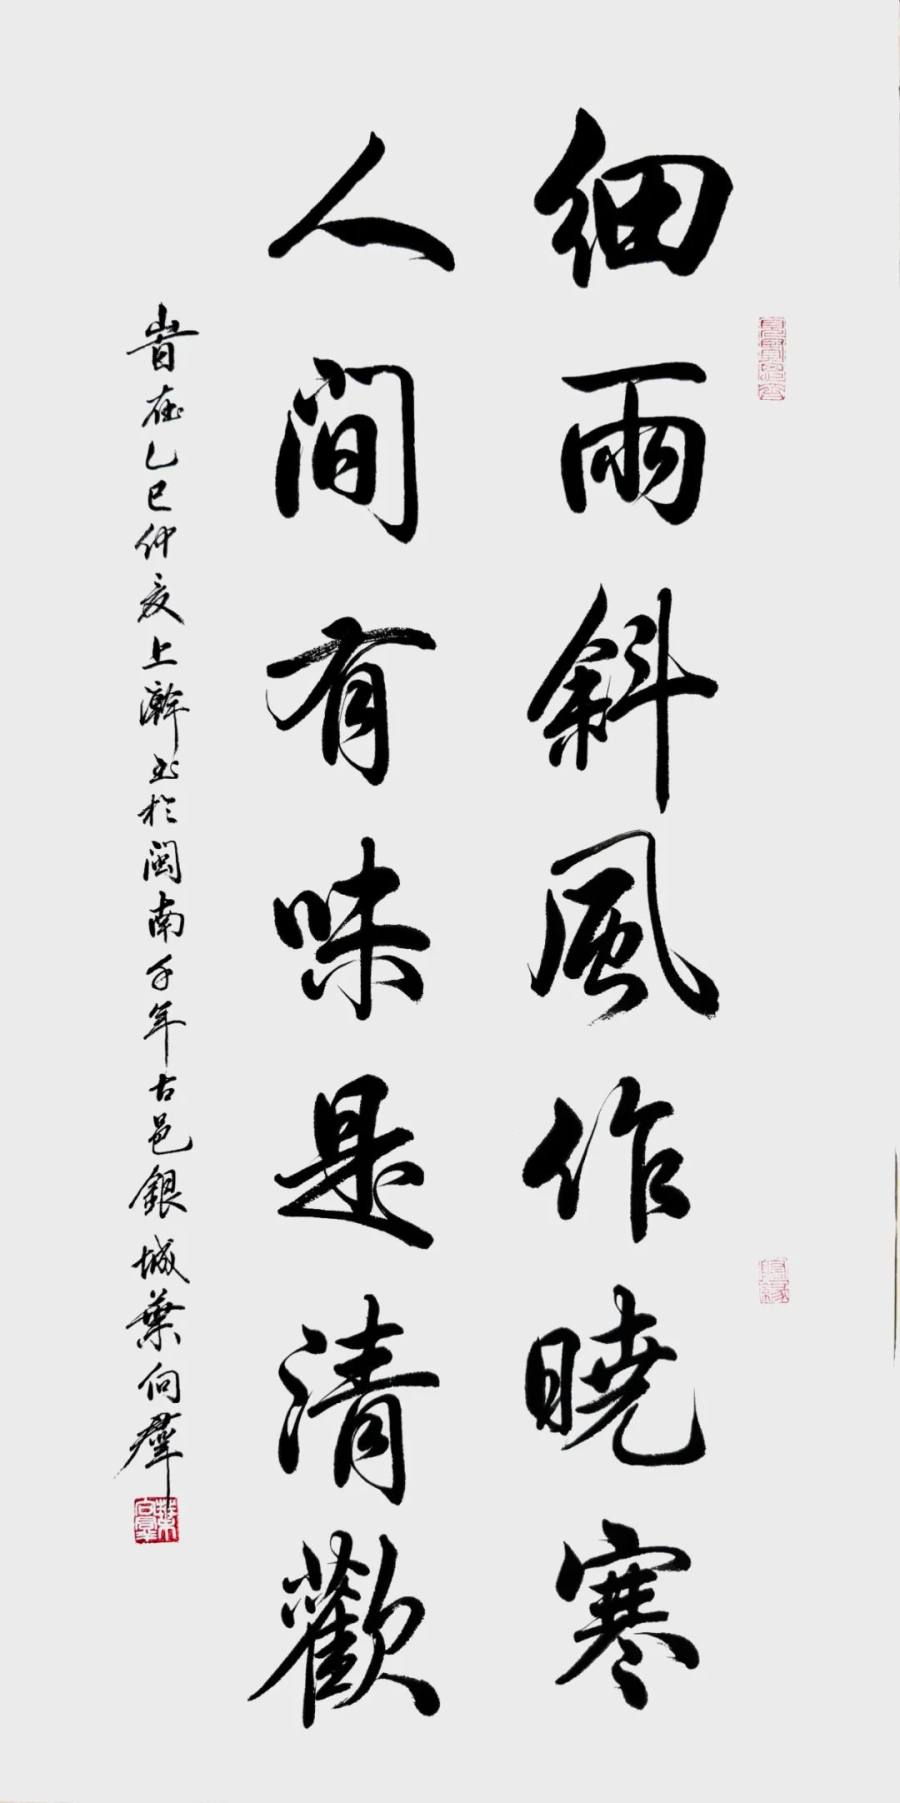 細雨斜風作曉寒
人間有味是清歡
旹在乙巳仲夏上澣書於閩南千年古邑銀城葉向羣
葉向羣